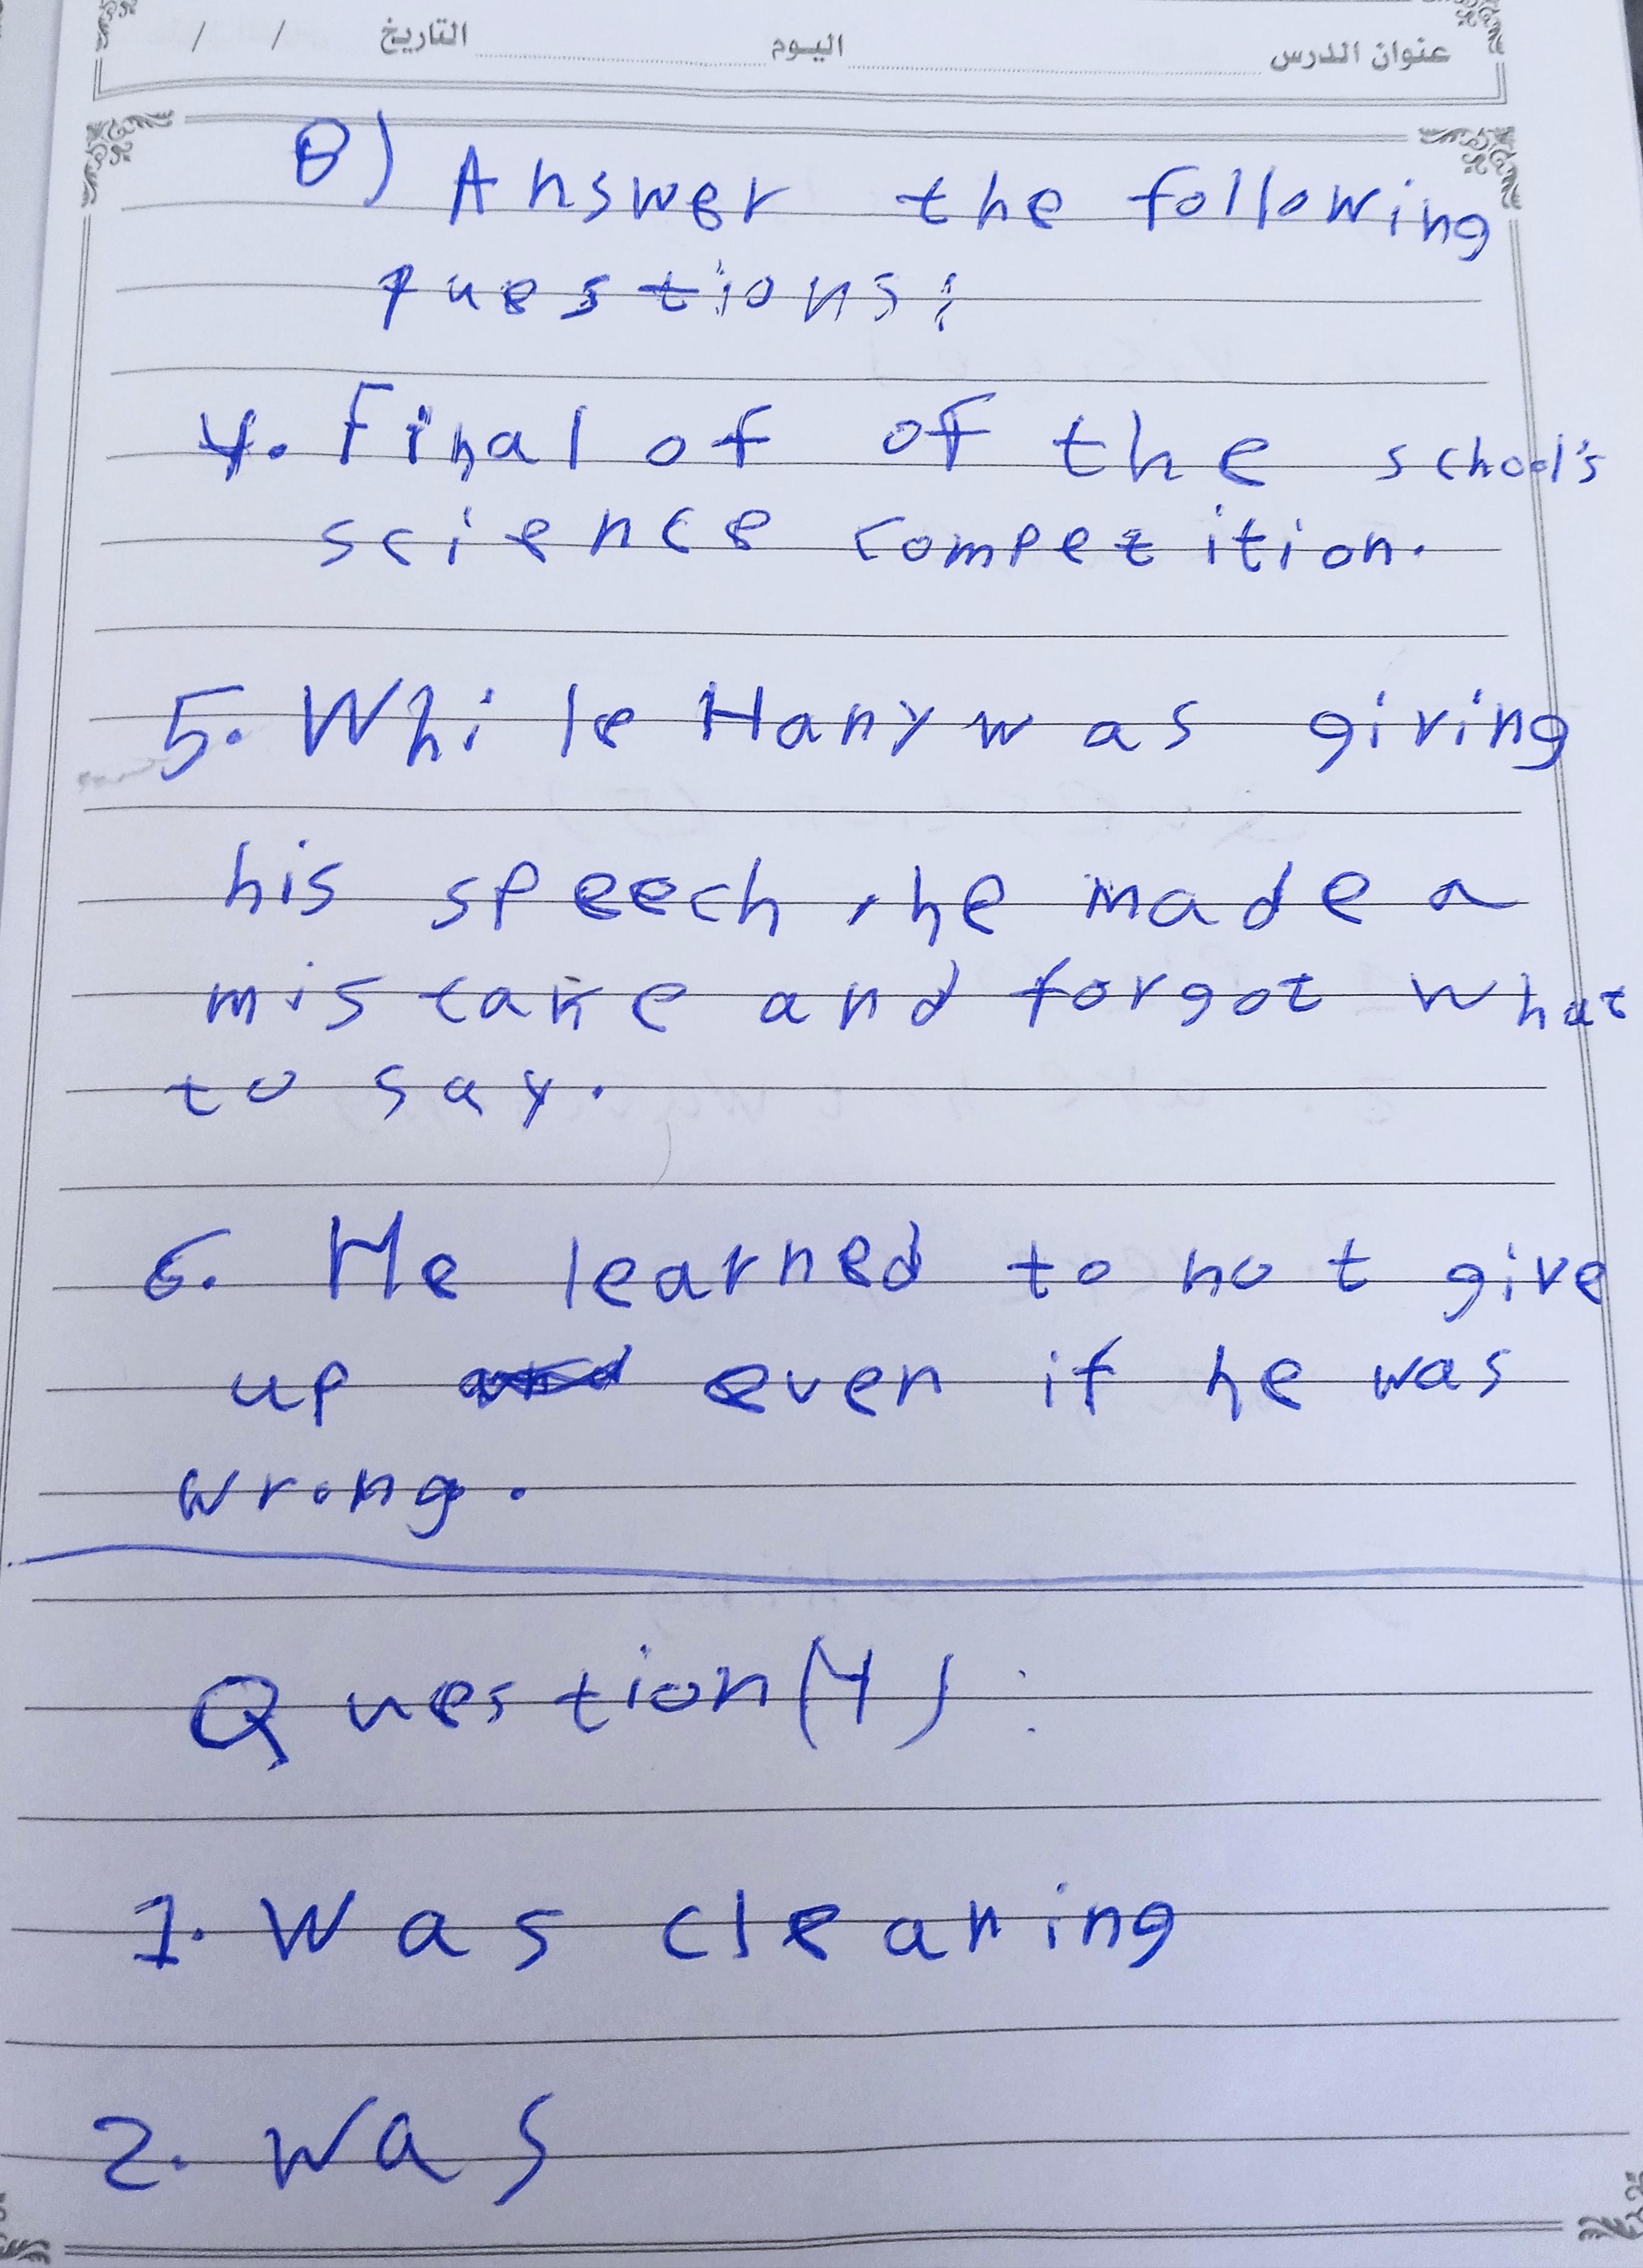 عنوان الدرس اليوم التاريخ / /
B) Answer the following
questions:
4. Final of of the school's
science competition.
5. While Hany was giving
his speech, he made a
mistake and forgot what
to say.
6. He learned to not give
up even if he was
wrong.
Question (4):
1. Was cleaning
2. was